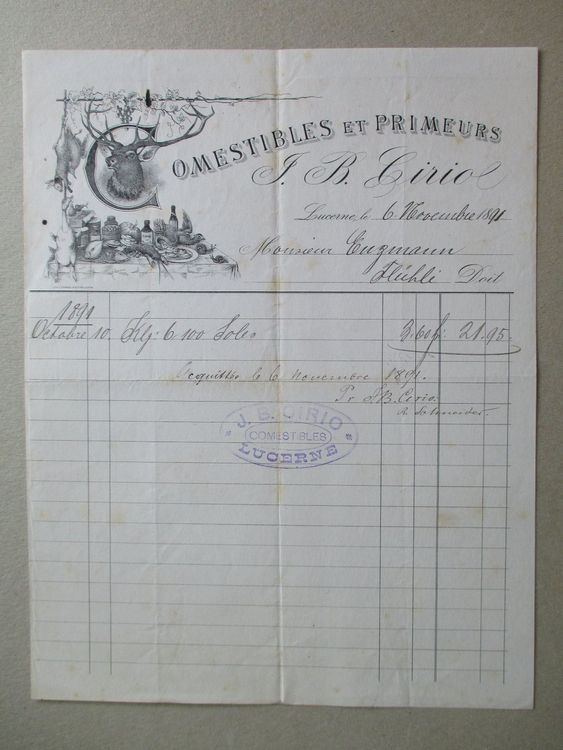 COMESTIBLES ET PRIMEURS
J. B. Cirio
Lucerne, le 6 Novembre 1891
Monsieur Enzmann
Flühli Doit
1891
Octobre 10. Klg: 6 100 Soles 3.60 21.95.
Acquitté le 6 novembre 1891.
Pr J.B. Cirio.
J. B. CIRIO
COMESTIBLES
LUCERNE